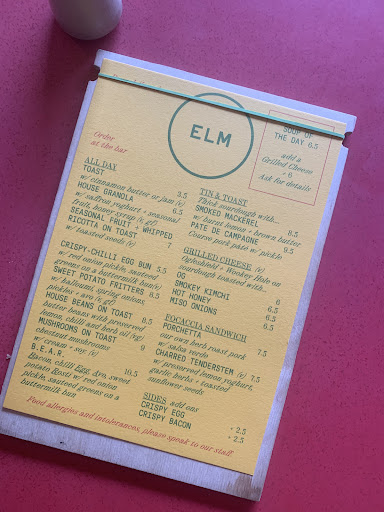 ELM
Order
at the bar
SOUP OF
THE DAY 6.5
add a
Grilled Cheese
+ 6
Ask for details
ALL DAY
TOAST
w/ cinnamon butter or jam (v) 3.5
HOUSE GRANOLA
w/ saffron yoghurt + seasonal 6.5
fruit, honey syrup (v, gf)
SEASONAL FRUIT + WHIPPED
RICOTTA ON TOAST
w/ toasted seeds (v) 7
CRISPY-CHILLI EGG BUN 5.5
w/ red onion pickle, sauteed
greens on a buttermilk bun(v)
SWEET POTATO FRITTERS 8.5
w/ halloumi, spring onion,
pickles + avo (v, gf)
HOUSE BEANS ON TOAST 8.5
butter beans with preserved
lemon, chilli and herb oil (vg)
MUSHROOMS ON TOAST 9
chestnut mushrooms
w/ cream + soy (v)
B.E.A.R. 10.5
Bacon, chilli Egg, Avo, sweet
potato Rosti w/ red onion
pickle, sauteed greens on a
buttermilk bun
TIN & TOAST
Third sourdough with...
SMOKED MACKEREL 8.5
w/ burnt lemon + brown butter
PATE DE CAMPAGNE 9.5
Course pork pate w/ pickle
GRILLED CHEESE (v)
Ogleshield + Wookey Hole on
sourdough toasted with...
OG 6
SMOKEY KIMCHI 6.5
HOT HONEY 6.5
MISO ONIONS 6.5
FOCACCIA SANDWICH
PORCHETTA 7.5
our own herb roast pork
w/ salsa verde
CHARRED TENDERSTEM (v) 7.5
w/ preserved lemon yoghurt,
garlic herbs + toasted
sunflower seeds
SIDES add ons
CRISPY EGG + 2.5
CRISPY BACON + 2.5
Food allergies and intolerances, please speak to our staff